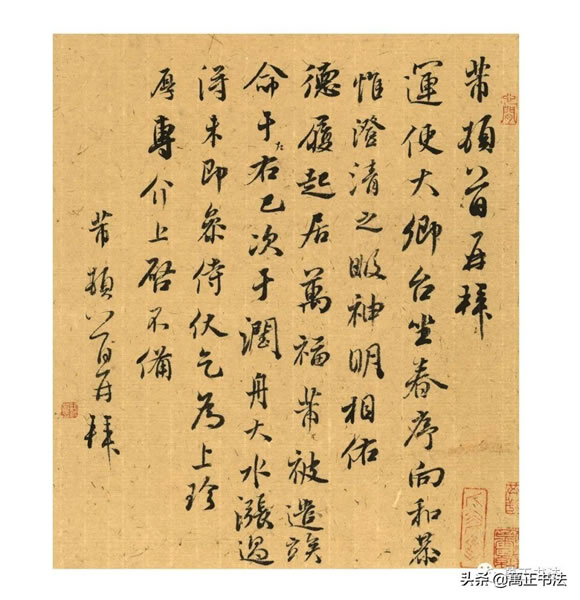 芾頓首再拜
運使大卿台坐春序向和恭
惟澄清之暇神明相佑
德履起居萬福芾被遣俟
命于左右已次于潤舟大水漲過
得未即參侍伏乞為上珍
厚專介上啓不備
芾頓首再拜
头条@萬正书法